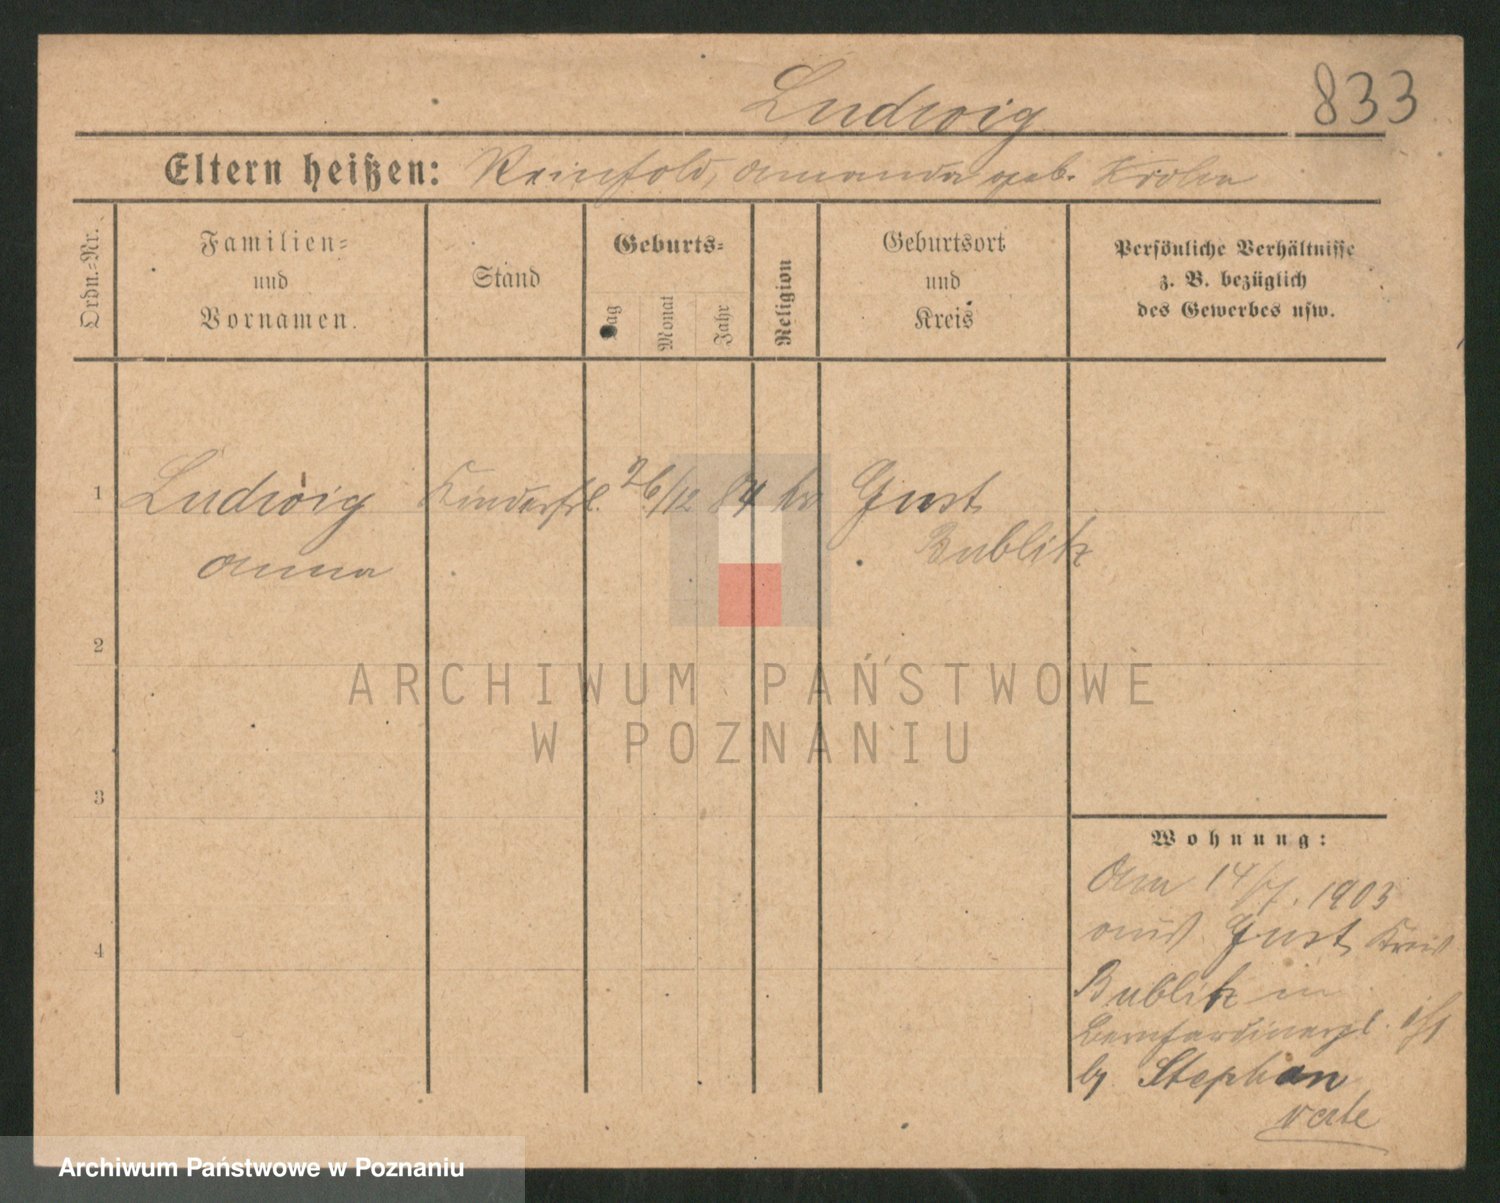 Ludwig
833
Eltern heißen: Reinhold, Amanda geb. Krohn
Ordn.=Nr.
Familien=
und
Vornamen.
Stand
Geburts=
Tag
Monat
Jahr
Religion
Geburtsort
und
Kreis
Persönliche Verhältnisse
z. B. bezüglich
des Gewerbes usw.
1 Ludwig Kinderfrl. 26/12 84 Gust
Anna Bublitz
2
3
4
Wohnung:
Am 14/7. 1903
aus Gust Kreis
Bublitz in
Bernhardinerpl.
by Stephan
verte
ARCHIWUM PAŃSTWOWE
W POZNANIU
Archiwum Państwowe w Poznaniu